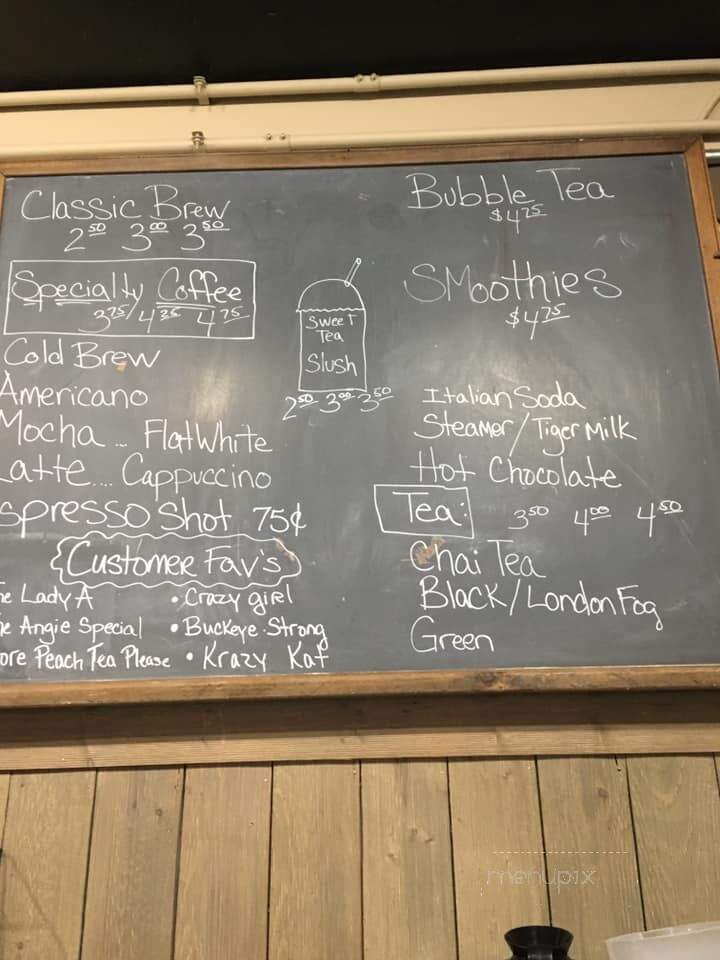 Classic Brew
2.50 3.00 3.50
Specialty Coffee
3.75/4.25 4.75
Cold Brew
Americano
Mocha... Flat White
Latte.... Cappuccino
spresso Shot 75¢
Customer Fav's
he Lady A
he Angie Special
ore Peach Tea Please
• Crazy girl
• Buckeye Strong
• Krazy Kat
Sweet
Tea
Slush
2.50 3.00 3.50
Bubble Tea
$4.25
Smoothies
$4.75
Italian Soda
Steamer/Tiger Milk
Hot Chocolate
Tea: 3.50 4.00 4.50
Chai Tea
Black/London Fog
Green
menupix